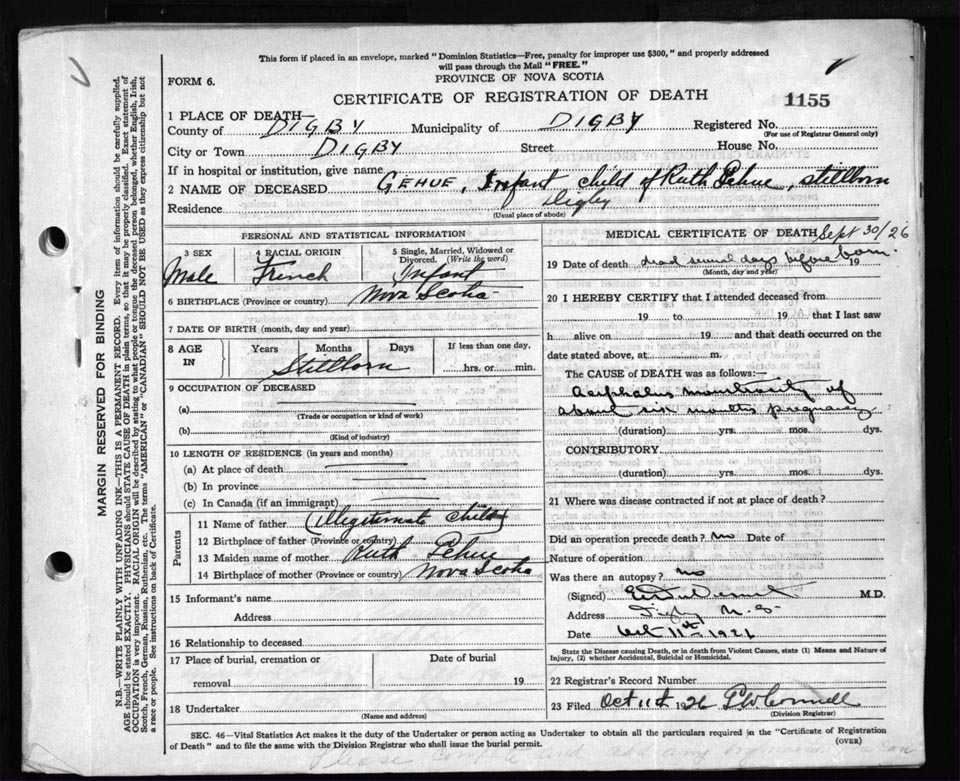 This form if placed in an envelope, marked "Dominion Statistics—Free, penalty for improper use $300," and properly addressed
will pass through the Mail "FREE."
FORM 6.
PROVINCE OF NOVA SCOTIA
CERTIFICATE OF REGISTRATION OF DEATH
1155
1 PLACE OF DEATH—
County of DIGBY Municipality of DIGBY Registered No.
(For use of Registrar General only)
City or Town DIGBY Street House No.
If in hospital or institution, give name
2 NAME OF DECEASED GEHUE, Infant child of Ruth Gehue, stillborn
Residence Digby
(Usual place of abode)
PERSONAL AND STATISTICAL INFORMATION
3 SEX 4 RACIAL ORIGIN 5 Single, Married, Widowed or Divorced. (Write the word)
Male French Infant
6 BIRTHPLACE (Province or country) Nova Scotia
7 DATE OF BIRTH (month, day and year)
8 AGE IN Years Months Days If less than one day,
Stillborn hrs. or min.
9 OCCUPATION OF DECEASED
(a)
(Trade or occupation or kind of work)
(b)
(Kind of industry)
10 LENGTH OF RESIDENCE (in years and months)
(a) At place of death
(b) In province
(c) In Canada (if an immigrant)
Parents
11 Name of father (Illegitimate child)
12 Birthplace of father (Province or country)
13 Maiden name of mother Ruth Gehue
14 Birthplace of mother (Province or country) Nova Scotia
15 Informant's name
Address
16 Relationship to deceased
17 Place of burial, cremation or removal Date of burial 19
18 Undertaker
(Name and address)
MEDICAL CERTIFICATE OF DEATH Sept 30/26
19 Date of death dead several days before born 19
(Month, day and year)
20 I HEREBY CERTIFY that I attended deceased from
19 to 19 that I last saw
h alive on 19 and that death occurred on
date stated above, at m.
The CAUSE of DEATH was as follows:—
monstrosity of
about six months pregnancy
(duration) yrs. mos. dys.
CONTRIBUTORY
(duration) yrs. mos. dys.
21 Where was disease contracted if not at place of death?
Did an operation precede death? no Date of
Nature of operation
Was there an autopsy? no
(Signed) M.D.
Address Digby N.S.
Date Oct 11th 1926
State the Disease causing Death, or in death from Violent Causes, state (1) Means and Nature of
Injury, (2) whether Accidental, Suicidal or Homicidal.
22 Registrar's Record Number
23 Filed Oct 11th 1926
(Division Registrar)
SEC. 46—Vital Statistics Act makes it the duty of the Undertaker or Person acting as Undertaker to obtain all the particulars required in the "Certificate of Registration
of Death" and to file the same with the Division Registrar who shall issue the burial permit.
(OVER)
MARGIN RESERVED FOR BINDING
N.B.—WRITE PLAINLY WITH UNFADING INK—THIS IS A PERMANENT RECORD. Every item of information should be carefully supplied.
AGE should be stated EXACTLY. PHYSICIANS should STATE CAUSE OF DEATH in plain terms, so that it may be properly classified. Exact statement of
OCCUPATION is very important. RACIAL ORIGIN will be described by stating to what people or tongue the deceased person belonged, whether English, Irish,
Scotch, French, German, Russian, Ruthenian, etc. The terms "AMERICAN" or "CANADIAN" SHOULD NOT BE USED as they express citizenship but not
a race or people. See instructions on back of Certificate.